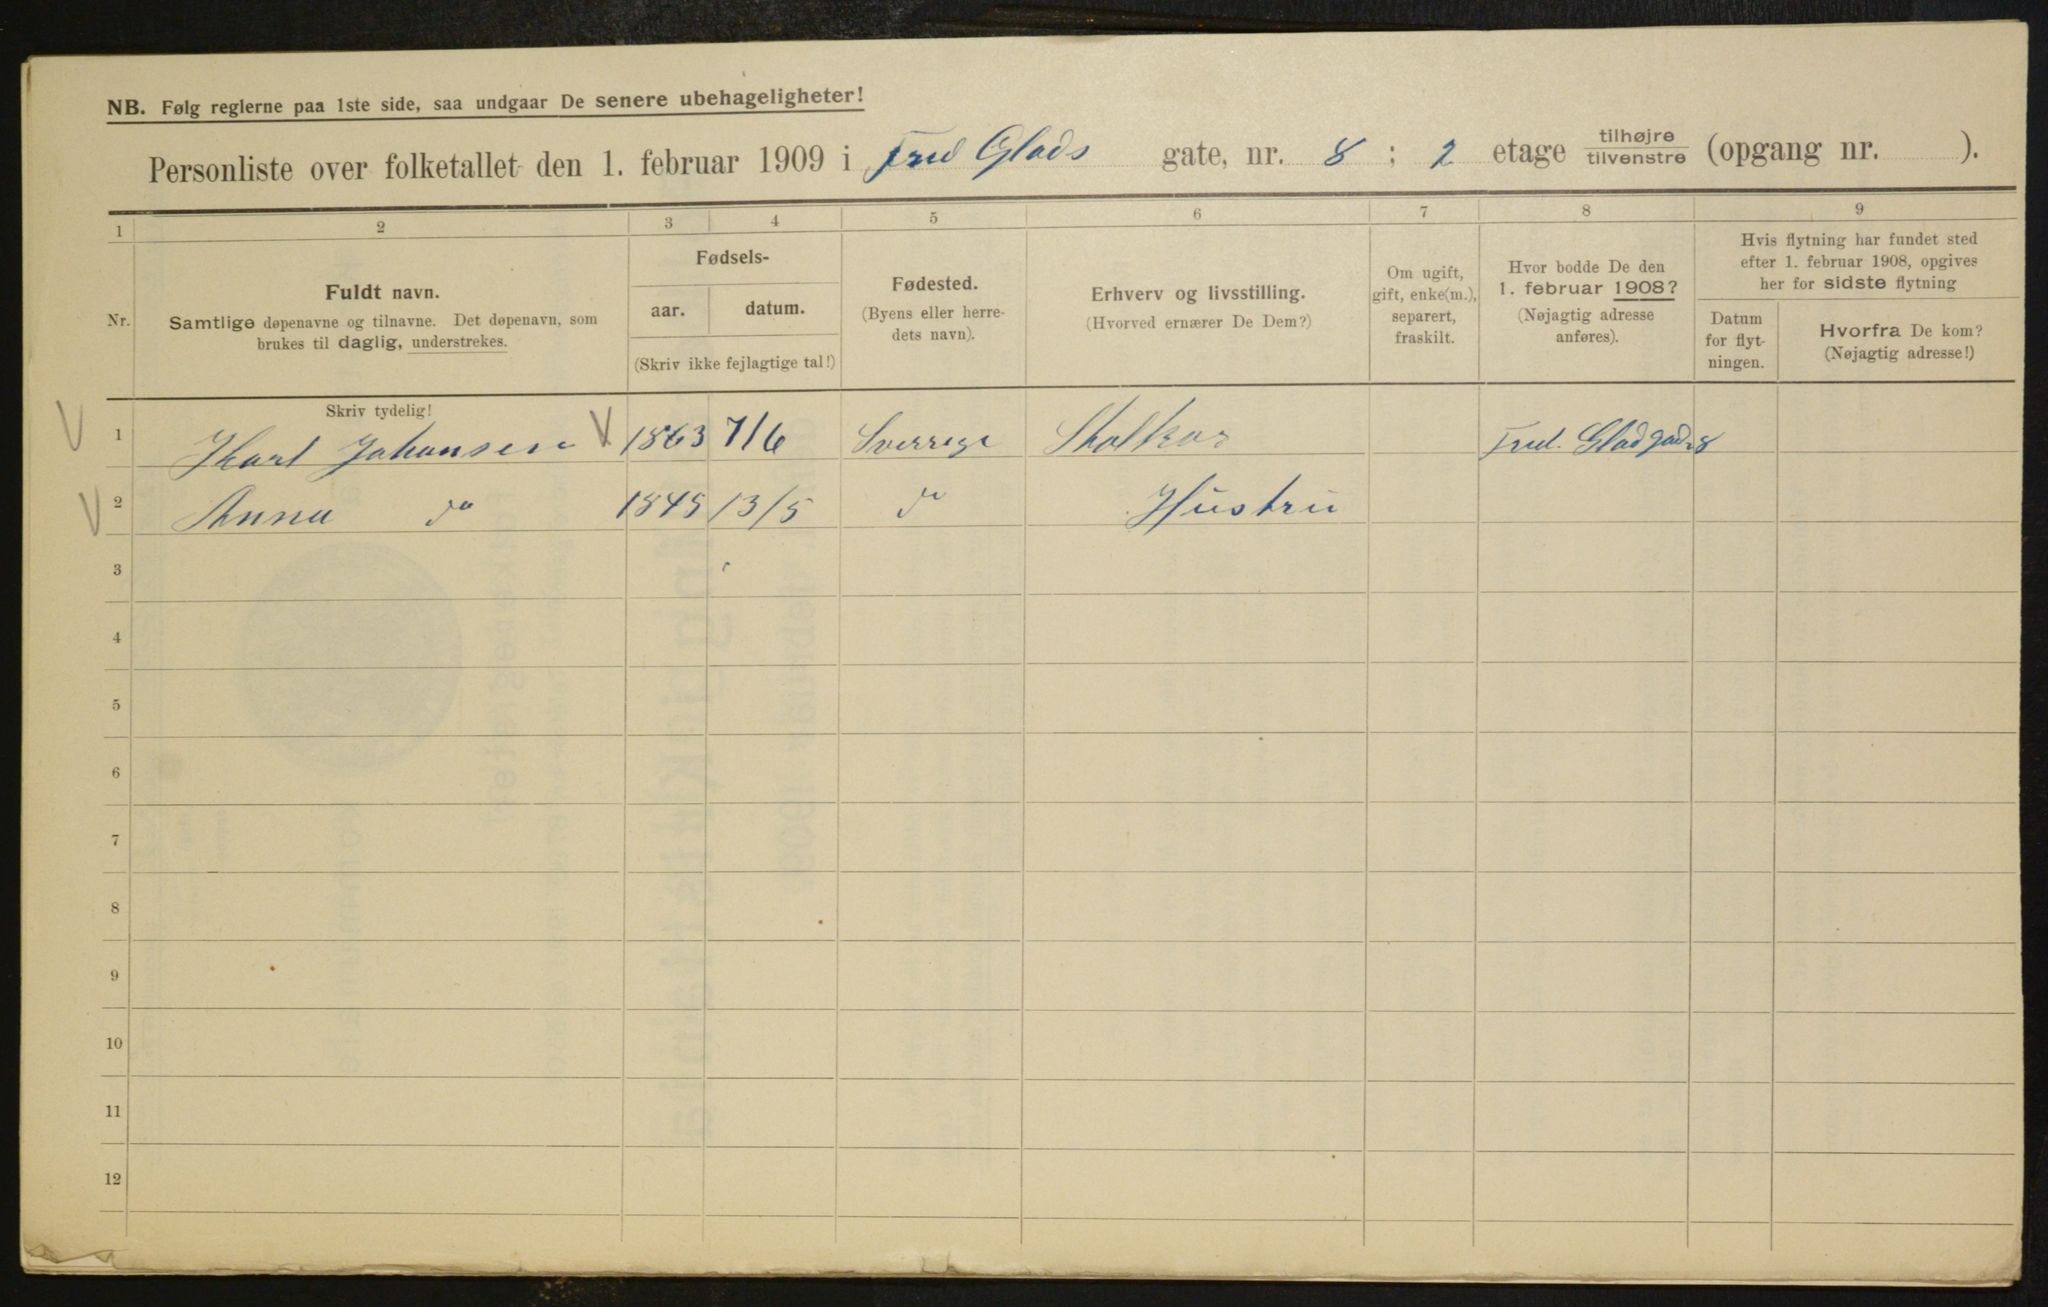 NB. Følg reglerne paa 1ste side, saa undgaar De senere ubehageligheter!
Personliste over folketallet den 1. februar 1909 i Fred Glads gate, nr. 8 ; 2 etage tilhøjre/tilvenstre (opgang nr. ).
1 2 3 4 5 6 7 8 9
Nr.
Fuldt navn.
Samtlige døpenavne og tilnavne. Det døpenavn, som
brukes til daglig, understrekes.
Fødsels-
aar. datum.
(Skriv ikke fejlagtige tal!)
Fødested.
(Byens eller herre-
dets navn).
Erhverv og livsstilling.
(Hvorved ernærer De Dem?)
Om ugift,
gift, enke(m.),
separert,
fraskilt.
Hvor bodde De den
1. februar 1908?
(Nøjagtig adresse
anføres).
Hvis flytning har fundet sted
efter 1. februar 1908, opgives
her for sidste flytning
Datum
for flyt-
ningen.
Hvorfra De kom?
(Nøjagtig adresse!)
Skriv tydelig!
1 Karl Johansen 1863 7/6 Sverrige Fred. Glad gade 8
2 Anna do 1845 13/5 do Hustru
3
4
5
6
7
8
9
10
11
12